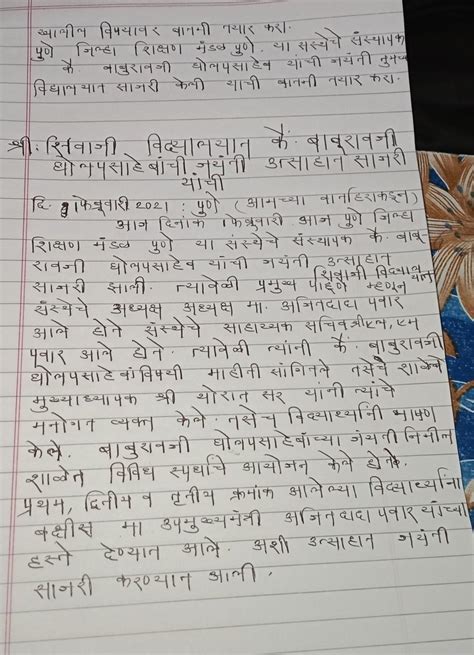 खालील विषयावर बातमी तयार करा.
पुणे जिल्हा शिक्षण मंडळ पुणे. या संस्थेचे संस्थापक
कै. बाबुरावजी घोलपसाहेब यांची जयंती तुमच्या
विद्यालयात साजरी केली याची बातमी तयार करा.
श्री. शिवाजी विद्यालयात कै. बाबुरावजी
घोलपसाहेबांची जयंती उत्साहात साजरी
यांची
दि. फेब्रुवारी 2021 : पुणे (आमच्या वार्ताहराकडून)
आज दिनांक फेब्रुवारी आज पुणे जिल्हा
शिक्षण मंडळ पुणे या संस्थेचे संस्थापक कै. बाबू-
रावजी घोलपसाहेब यांची जयंती उत्साहात
शिवाजी विद्यालयात
साजरी झाली. त्यावेळी प्रमुख पाहुणे म्हणून
संस्थेचे अध्यक्ष अध्यक्ष मा. अजितदादा पवार
आले होते संस्थेचे साहाय्यक सचिव श्री एल, एम
पवार आले होते. त्यावेळी त्यांनी कै. बाबुरावजी
घोलपसाहेबांविषयी माहीती सांगितले तसेच शाळेचे
मुख्याध्यापक श्री थोरात सर यांनी त्यांचे
मनोगत व्यक्त केले. तसेच विद्यार्थ्यांनी भाषण
केले. बाबुरावजी घोलपसाहेबांच्या जयंती निमीत्त
शाळेत विविध स्पर्धाचे आयोजन केले होते.
प्रथम, द्वितीय व तृतीय क्रमांक आलेल्या विद्यार्थ्यांना
बक्षीस मा उपमुख्यमंत्री अजितदादा पवार यांच्या
हस्ते देण्यात आले. अशी उत्साहात जयंती
साजरी करण्यात आली.